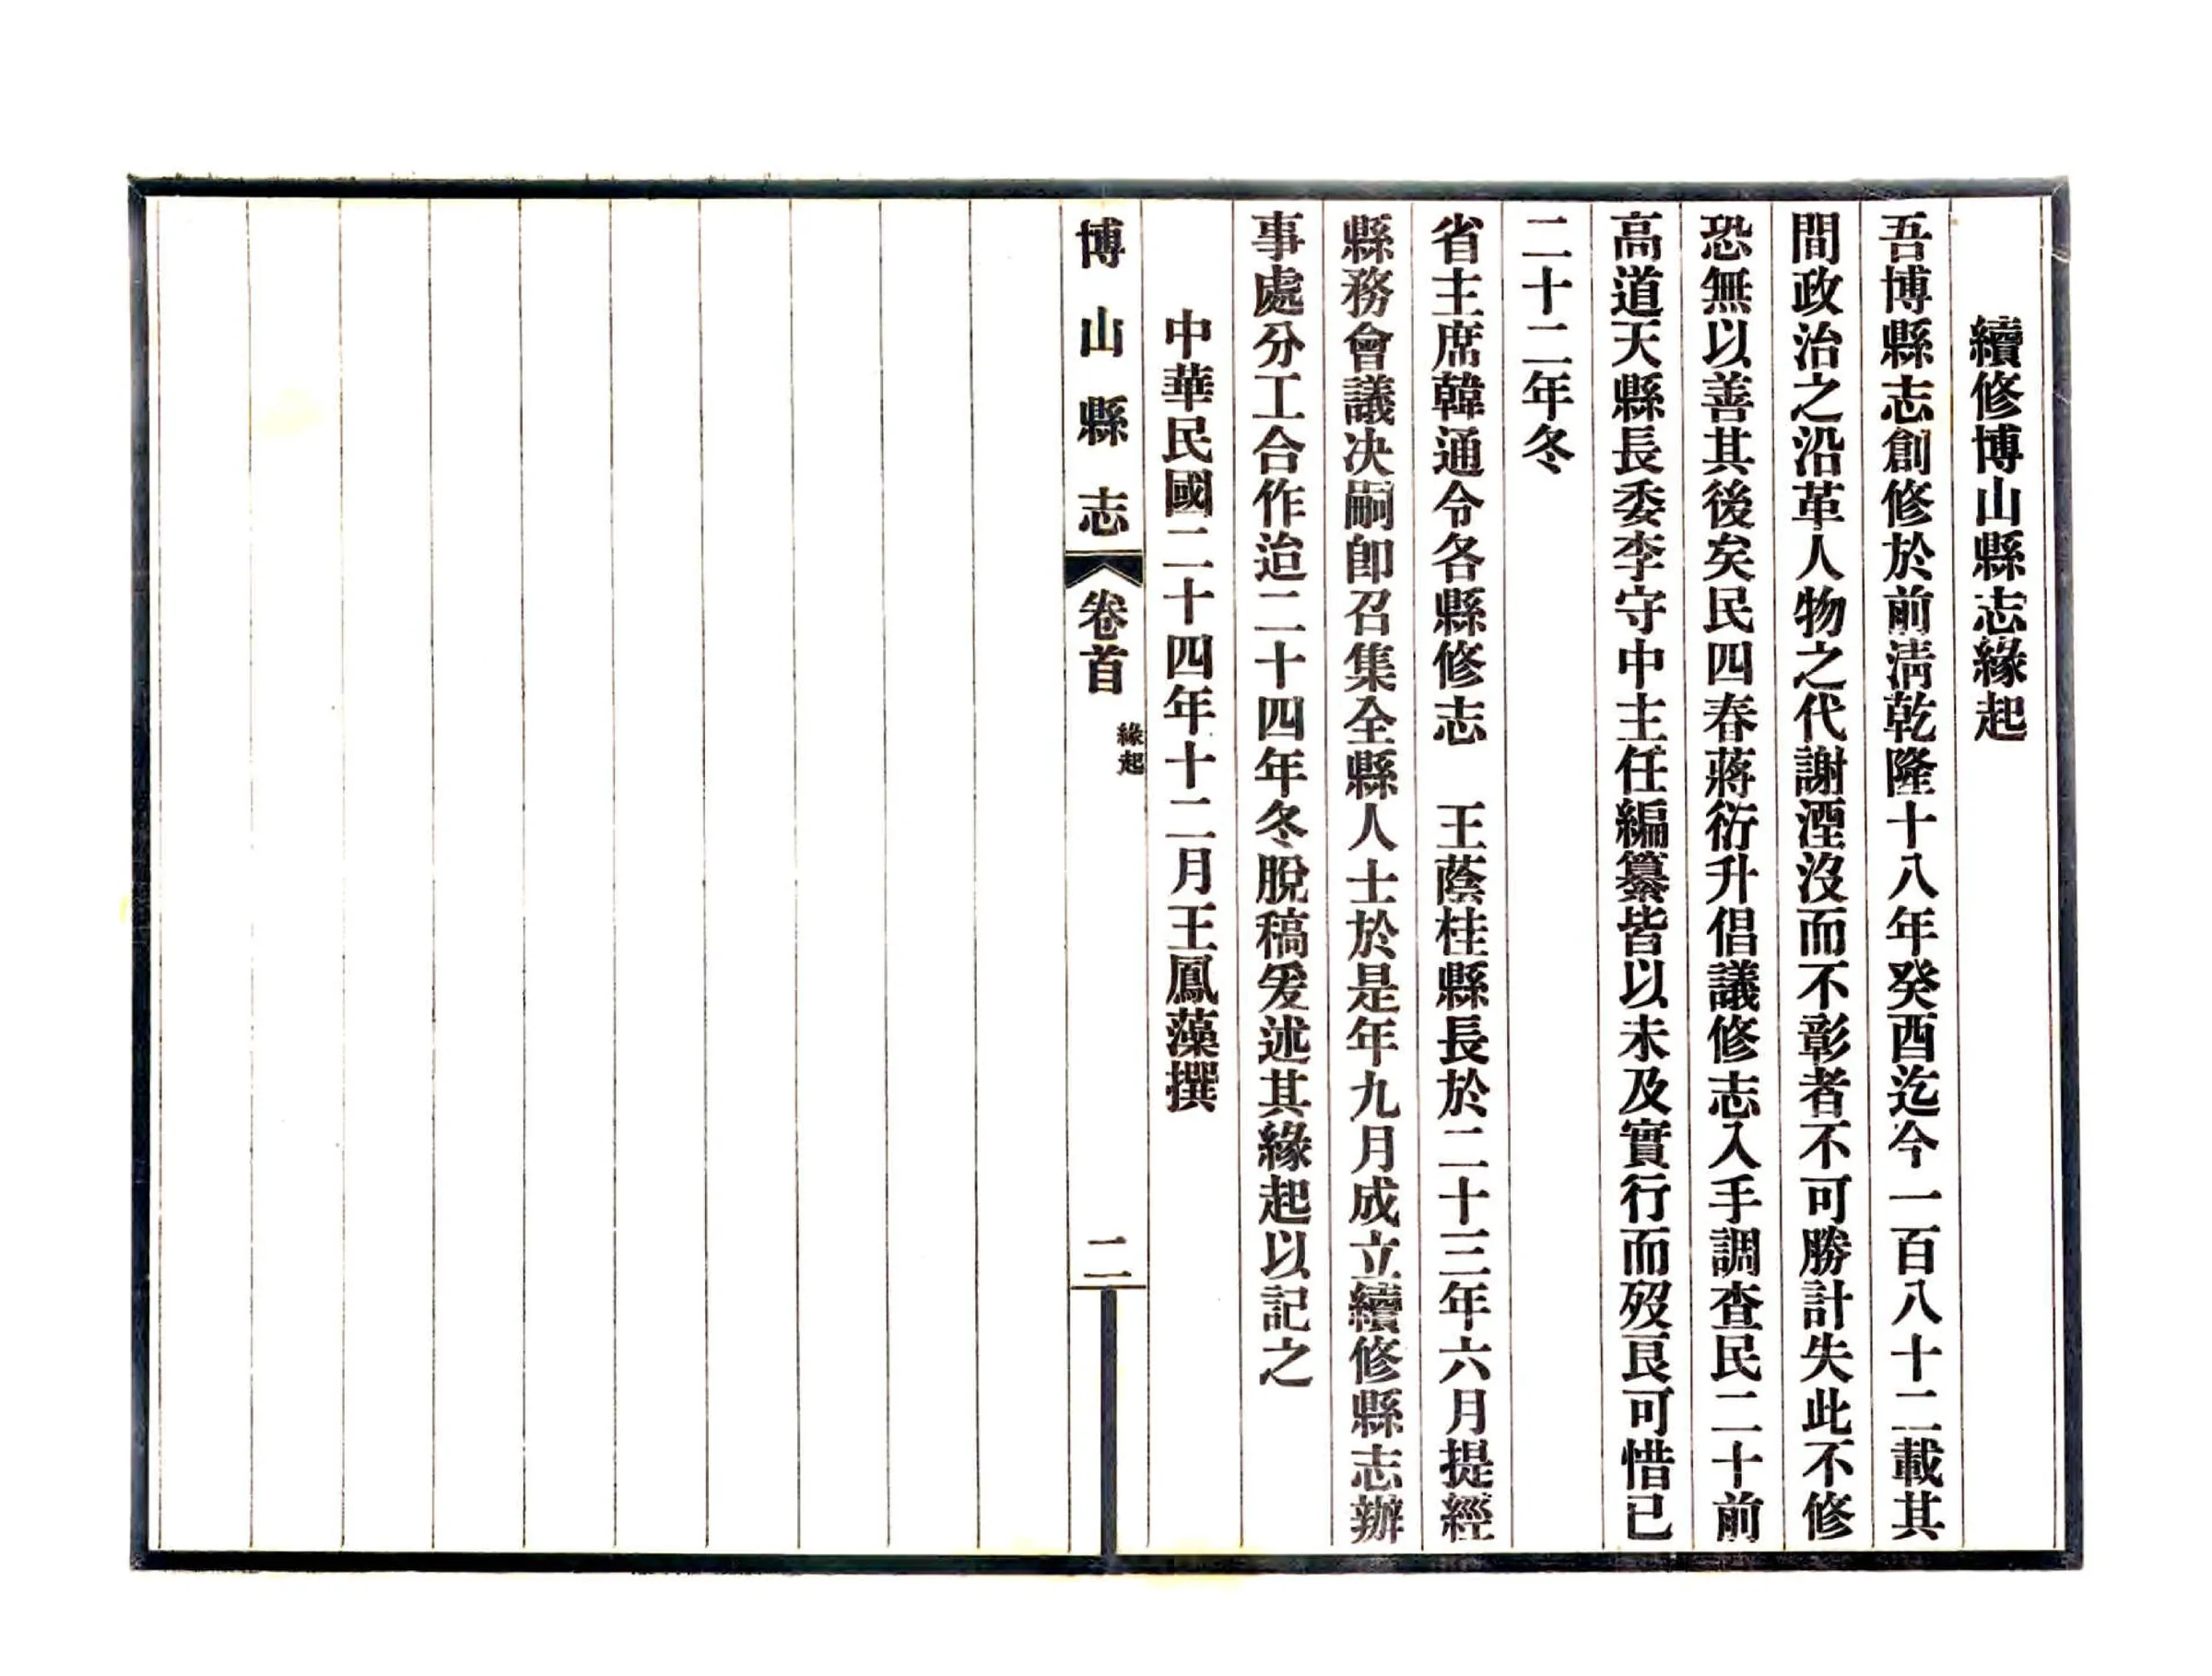 續修博山縣志緣起
吾博縣志創修於前淸乾隆十八年癸酉迄今一百八十二載其
間政治之沿革人物之代謝湮沒而不彰者不可勝計失此不修
恐無以善其後矣民四春蔣衍升倡議修志入手調查民二十前
高道天縣長委李守中主任編纂皆以未及實行而歿良可惜已
二十二年冬
省主席韓通令各縣修志　王蔭桂縣長於二十三年六月提經
縣務會議决嗣卽召集全縣人士於是年九月成立續修縣志辦
事處分工合作迨二十四年冬脫稿爰述其緣起以記之
中華民國二十四年十二月王鳳藻撰
博山縣志
卷首
緣起
二